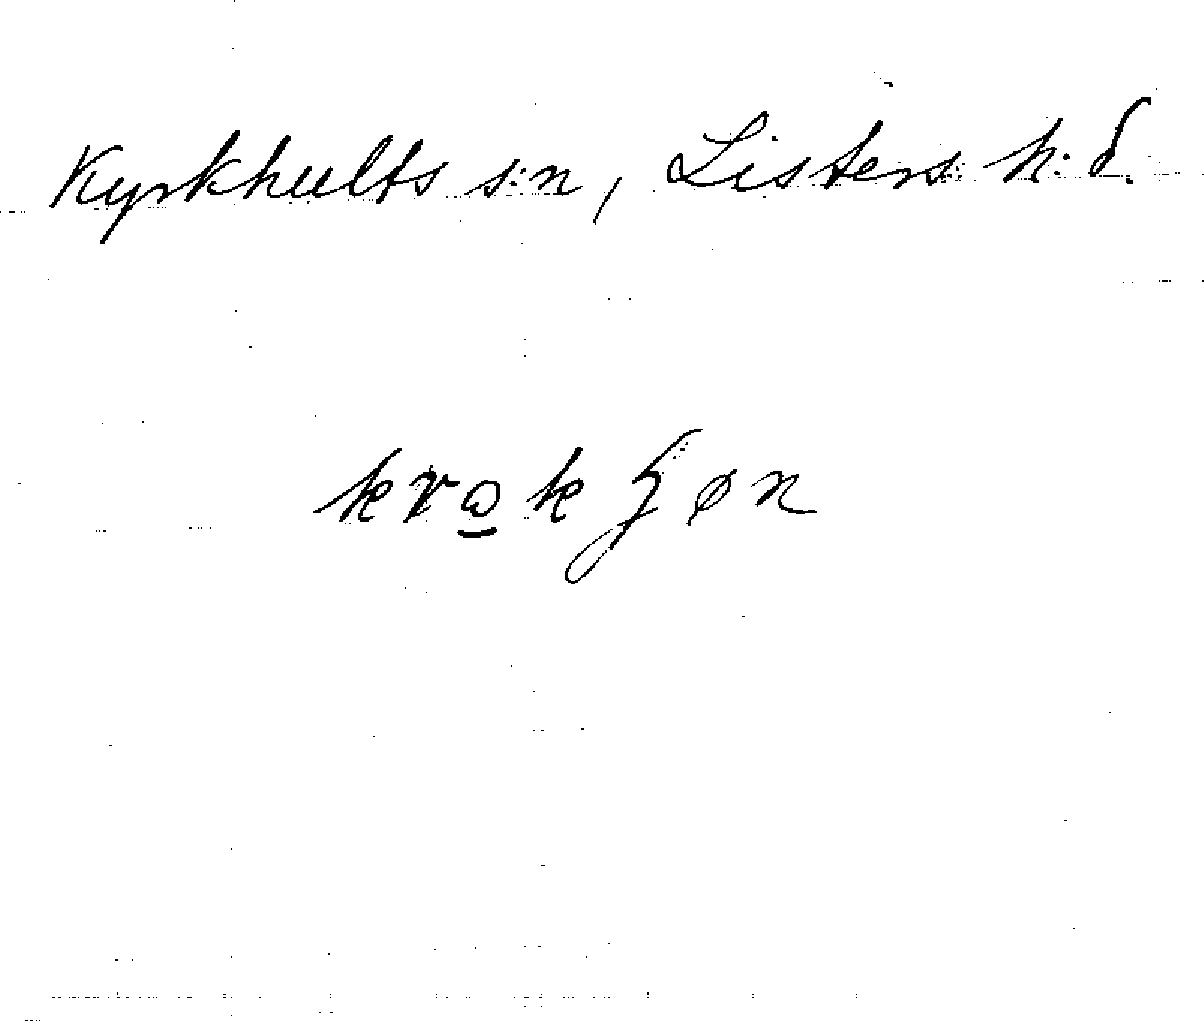 Kyrkhults s:n, Listers h:d.
krωkʃøn